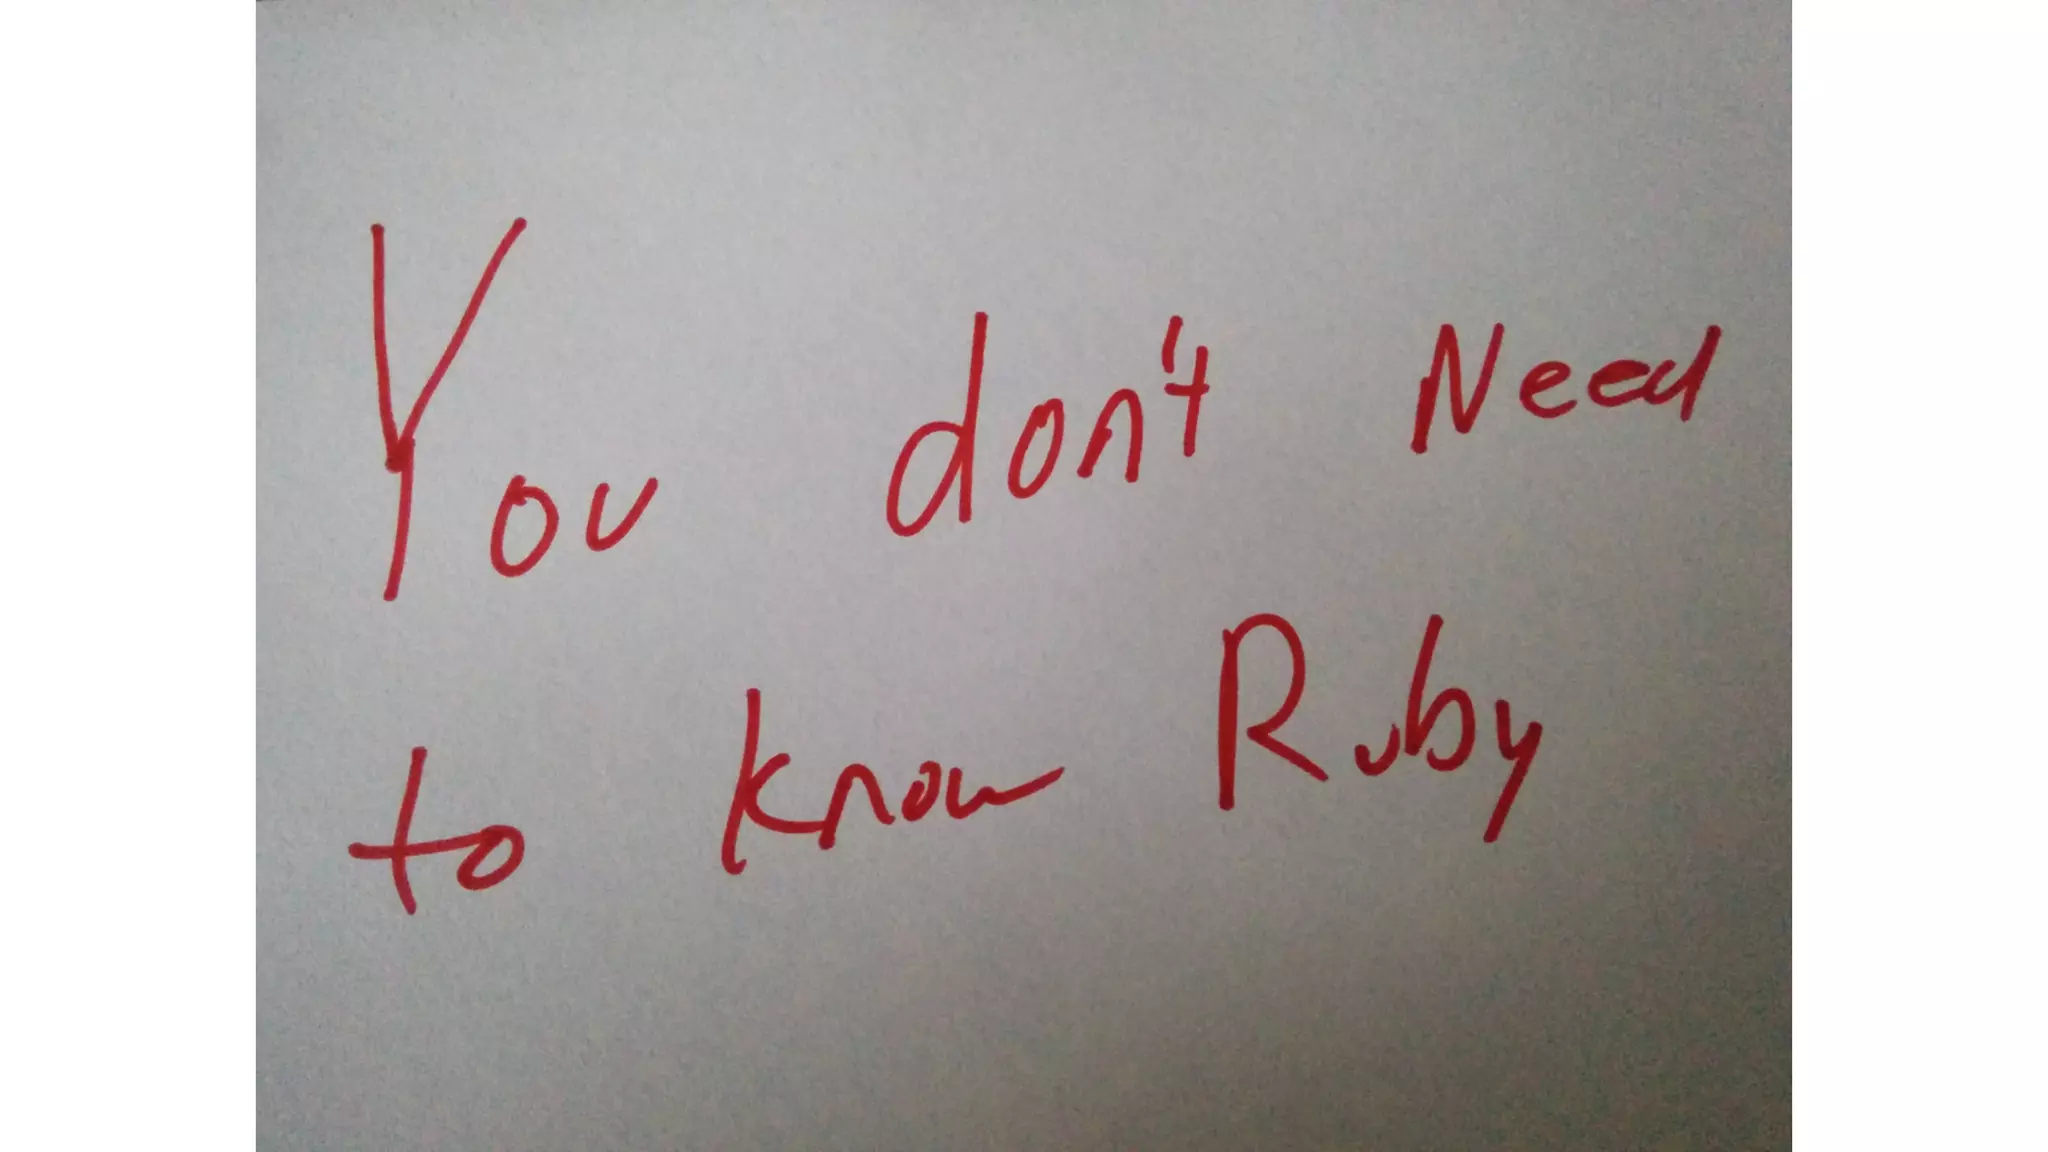 You don't Need
to know Ruby